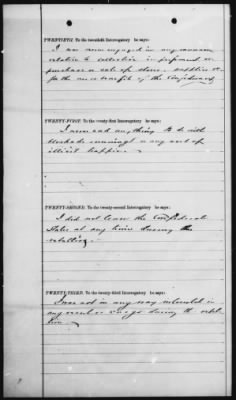 TWENTIETH. To the twentieth Interrogatory he says:
I was never engaged in any manner
relative to collection in
purchase or sale of stores, supplies or
for the use or benefit of the Confederacy
TWENTY-FIRST. To the twenty-first Interrogatory he says:
I never had anything to do with
blockade running or any sort of
illicit traffic.
TWENTY-SECOND. To the twenty-second Interrogatory he says:
I did not leave the Confederate
States at any time during the
rebellion.
TWENTY-THIRD. To the twenty-third Interrogatory he says:
I was not in any way interested in
any vessel or cargo during the